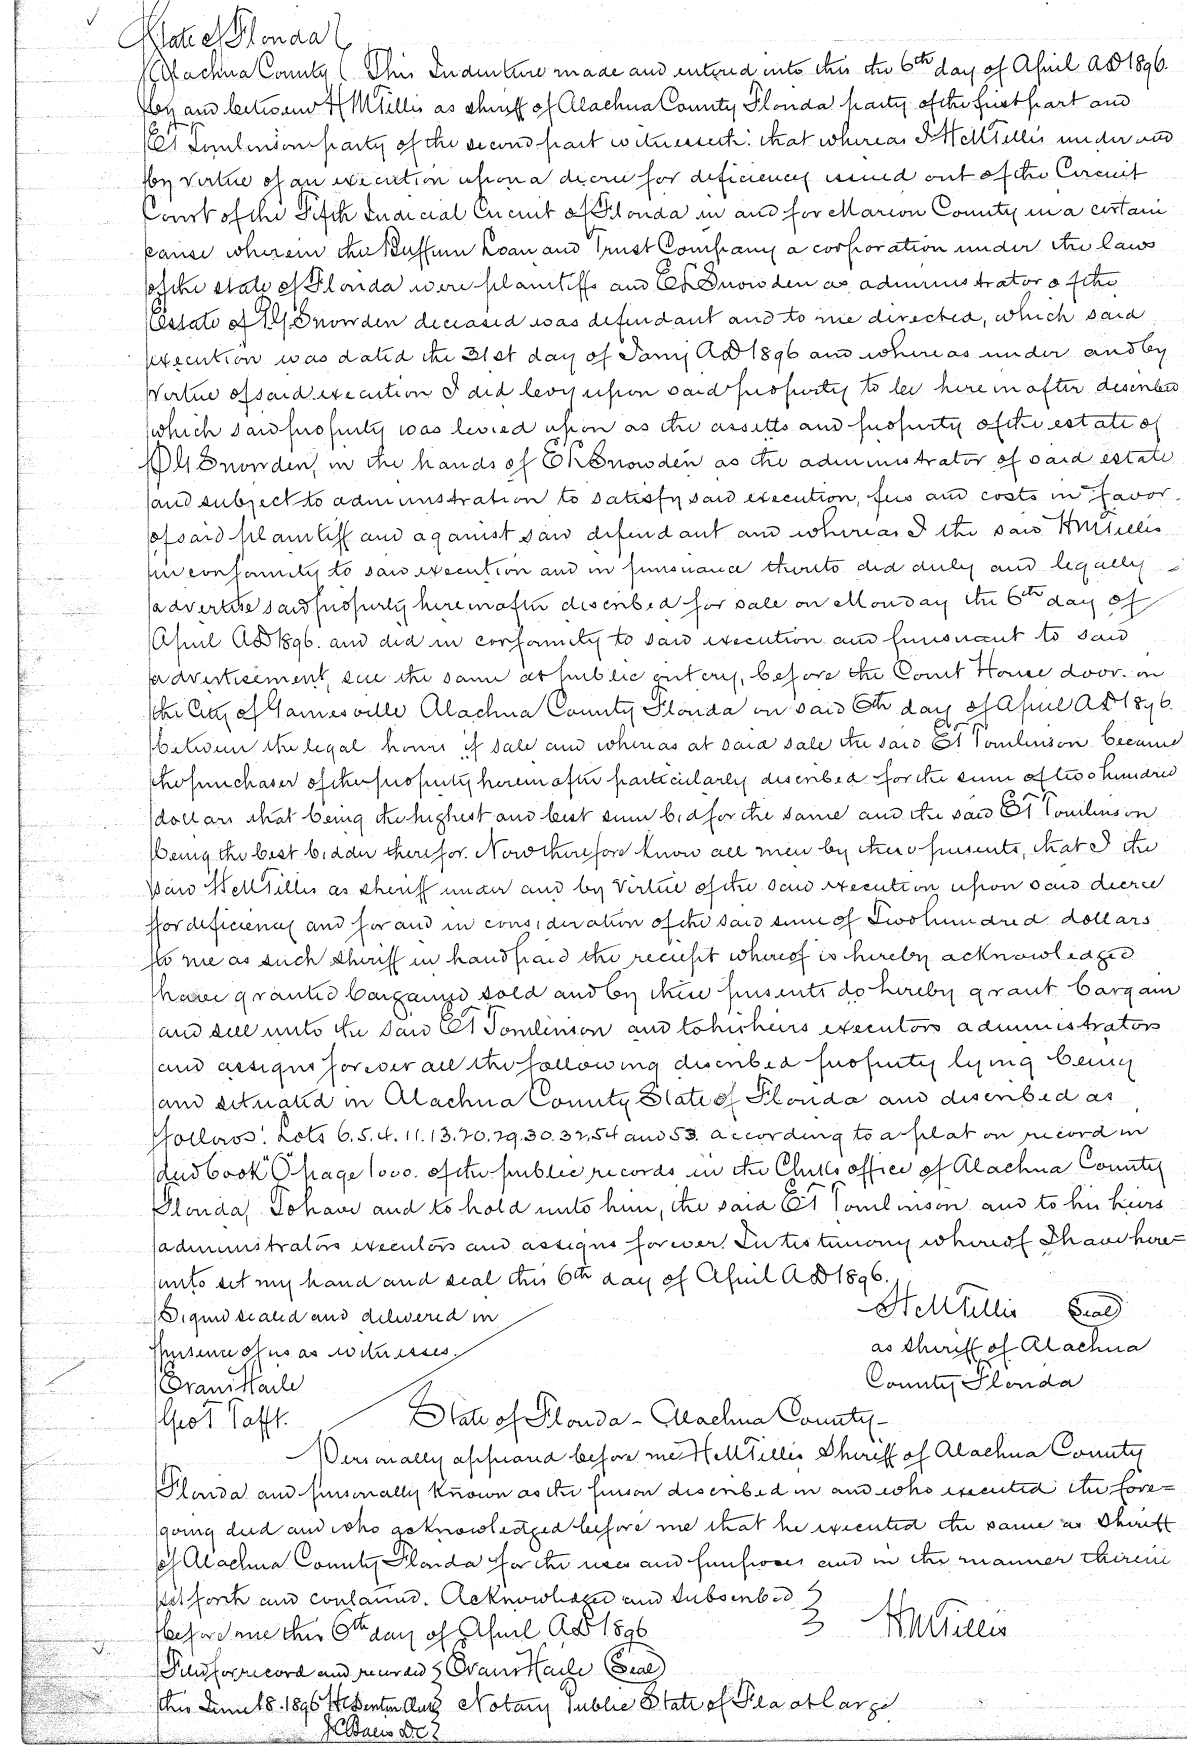 State of Florida }
Alachua County { This Indenture made and entered into this the 6th day of April AD 1896.
by and between H M Tillis as sheriff of Alachua County Florida party of the first part and
ET Tomlinson party of the second part witnesseth: that whereas I H M Tillis under and
by virtue of an execution upon a decree for deficiency issued out of the Circuit
Court of the Fifth Judicial Circuit of Florida in and for Marion County in a certain
cause wherein the Buffum Loan and Trust Company a corporation under the laws
of the state of Florida were plaintiffs and E L Snowden as administrator of the
Estate of P G Snowden deceased was defendant and to me directed, which said
execution was dated the 31st day of Jany AD 1896 and whereas under and by
virtue of said execution I did levy upon said property to be here in after described
which said property was levied upon as the assetts and property of the estate of
P G Snowden, in the hands of E L Snowden as the administrator of said estate
and subject to administration to satisfy said execution, fees and costs in favor
of said plaintiff and against said defendant and whereas I the said H M Tillis
in conformity to said execution and in pursuance thereto did duly and legally
advertise said property hereinafter described for sale on Monday the 6th day of
April AD 1896. and did in conformity to said execution and pursuant to said
advertisement, sell the same at public outcry, before the Court House door in
the City of Gainesville Alachua County Florida on said 6th day of April AD 1896.
between the legal hours if sale and whereas at said sale the said ET Tomlinson became
the purchaser of the property hereinafter particularly described for the sum of two hundred
dollars that being the highest and best sum bid for the same and the said ET Tomlinson
being the best bidder therefor. Now therefore know all men by these presents, that I the
said H M Tillis as sheriff under and by virtue of the said execution upon said decree
for deficiency and for and in consideration of the said sum of Two hundred dollars
to me as such sheriff in hand paid the reciept whereof is hereby acknowledged
have granted bargained sold and by these presents do hereby grant bargain
and sell unto the said ET Tomlinson and to his heirs executors administrators
and assigns forever all the following described property lying being
and situated in Alachua County State of Florida and described as
follows: Lots 6.5.4.11.13.20.29.30.32.54 and 53. according to a plat on record in
deed book "O" page 1000. of the public records in the Clerks office of Alachua County
Florida, To have and to hold unto him, the said ET Tomlinson and to his heirs
administrators executors and assigns forever. In testimony whereof I have here=
unto set my hand and seal this 6th day of April AD 1896.
Signed sealed and delivered in H M Tillis Seal
presence of us as witnesses. as sheriff of Alachua
Evans Haile County Florida
Geo T Tafft. State of Florida - Alachua County -
Personally appeared before me H M Tillis Sheriff of Alachua County
Florida and personally known as the person described in and who executed the fore=
going deed and who acknowledged before me that he executed the same as Sheriff
of Alachua County Florida for the uses and purposes and in the manner therein
set forth and contained. Acknowledged and subscribed }
before me this 6th day of April AD 1896 H M Tillis
Filed for record and recorded } Evans Haile Seal
this June 18. 1896 Denton Clerk } Notary Public State of Fla at large
D.C. }